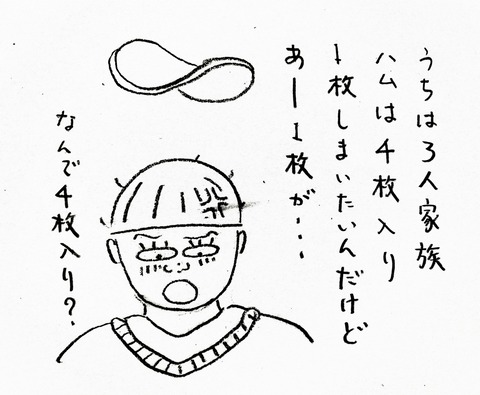 うちは3人家族
ハムは4枚入り
1枚しまいたいんだけど
あー1枚が・・・
なんで4枚入り？